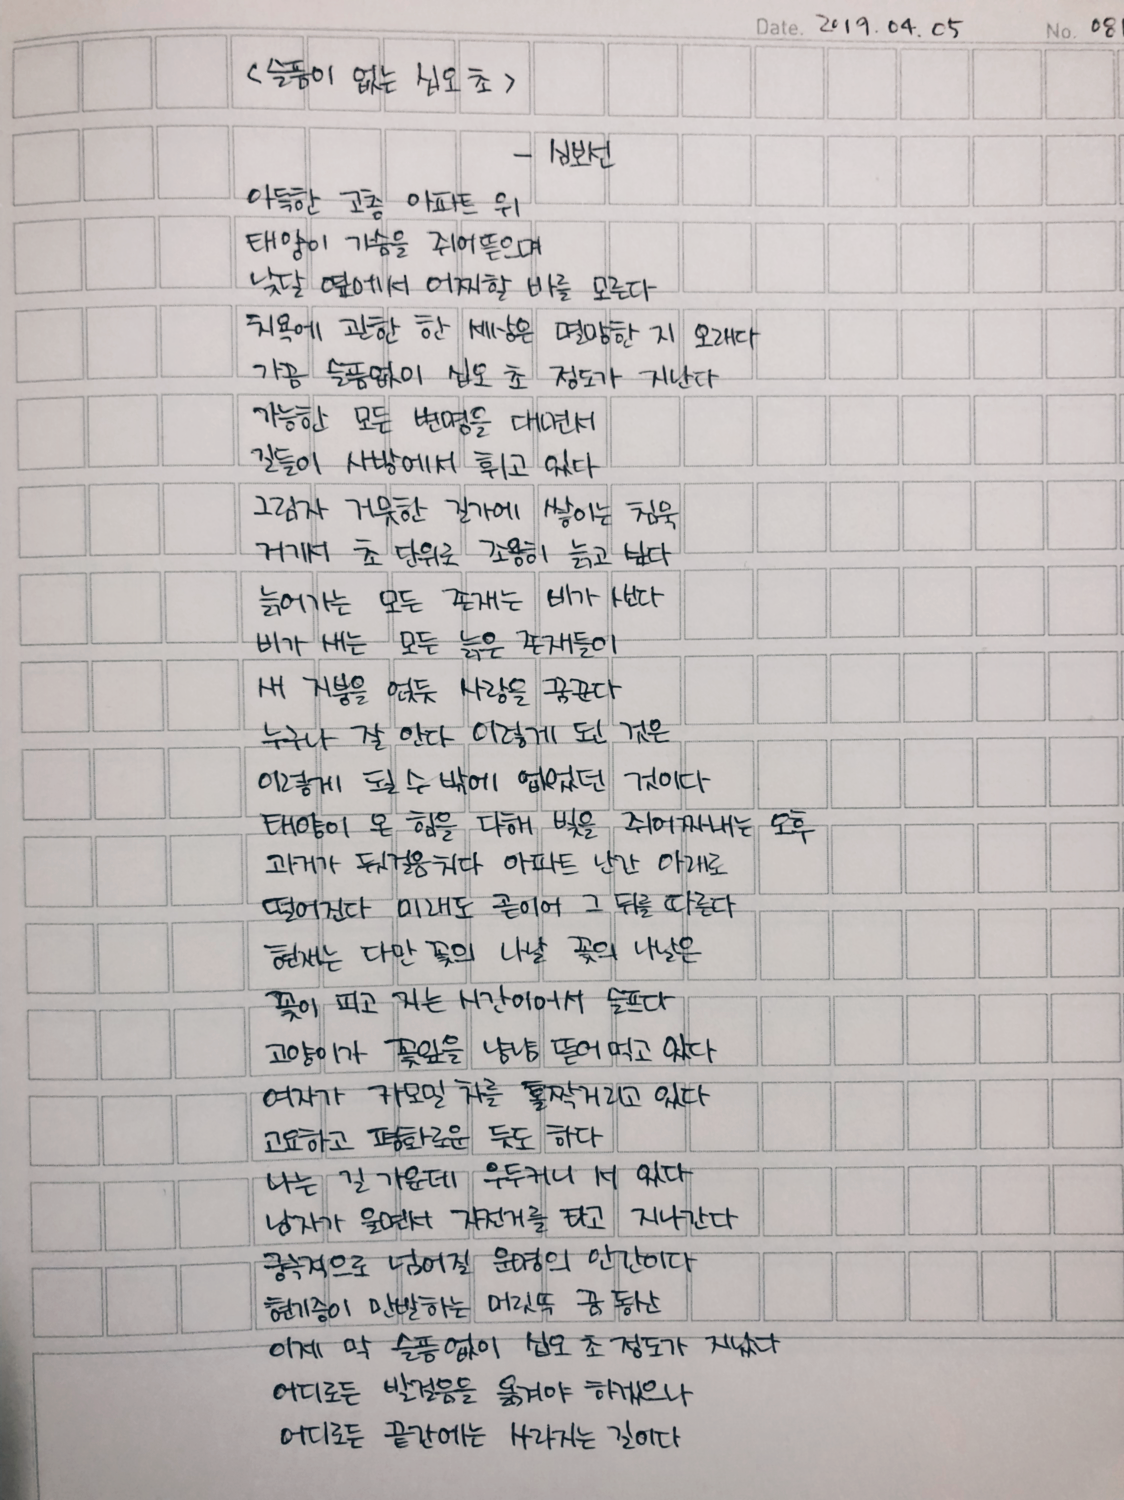 Date. 2019.04.05 No. 081
<슬픔이 없는 십오 초>
- 심보선
아득한 고층 아파트 위
태양이 가슴을 쥐어뜯으며
낮달 옆에서 어찌할 바를 모른다
치욕에 관한 한 세상은 멸망한 지 오래다
가끔 슬픔없이 십오 초 정도가 지난다
가능한 모든 변명을 대면서
길들이 사방에서 휘고 있다
그림자 거뭇한 길가에 쌓이는 침묵
거기서 초 단위로 조용히 늙고 싶다
늙어가는 모든 존재는 비가 샌다
비가 새는 모든 늙은 존재들이
새 지붕을 얹듯 사랑을 꿈꾼다
누구나 잘 안다 이렇게 된 것은
이렇게 될 수 밖에 없었던 것이다
태양이 온 힘을 다해 빛을 쥐어짜내는 오후
과거가 뒷걸음치다 아파트 난간 아래로
떨어진다 미래도 곧이어 그 뒤를 따른다
현재는 다만 꽃의 나날 꽃의 나날은
꽃이 피고 지는 시간이어서 슬프다
고양이가 꽃잎을 냠냠 뜯어먹고 있다
여자가 카모밀 차를 홀짝거리고 있다
고요하고 평화로운 듯도 하다
나는 길 가운데 우두커니 서 있다
남자가 울면서 자전거를 타고 지나간다
궁극적으로 넘어질 운명의 인간이다
현기증이 만발하는 머릿속 꿈 동산
이제 막 슬픔없이 십오 초 정도가 지났다
어디로든 발걸음을 옮겨야 하겠으나
어디로든 끝간에는 사라지는 길이다